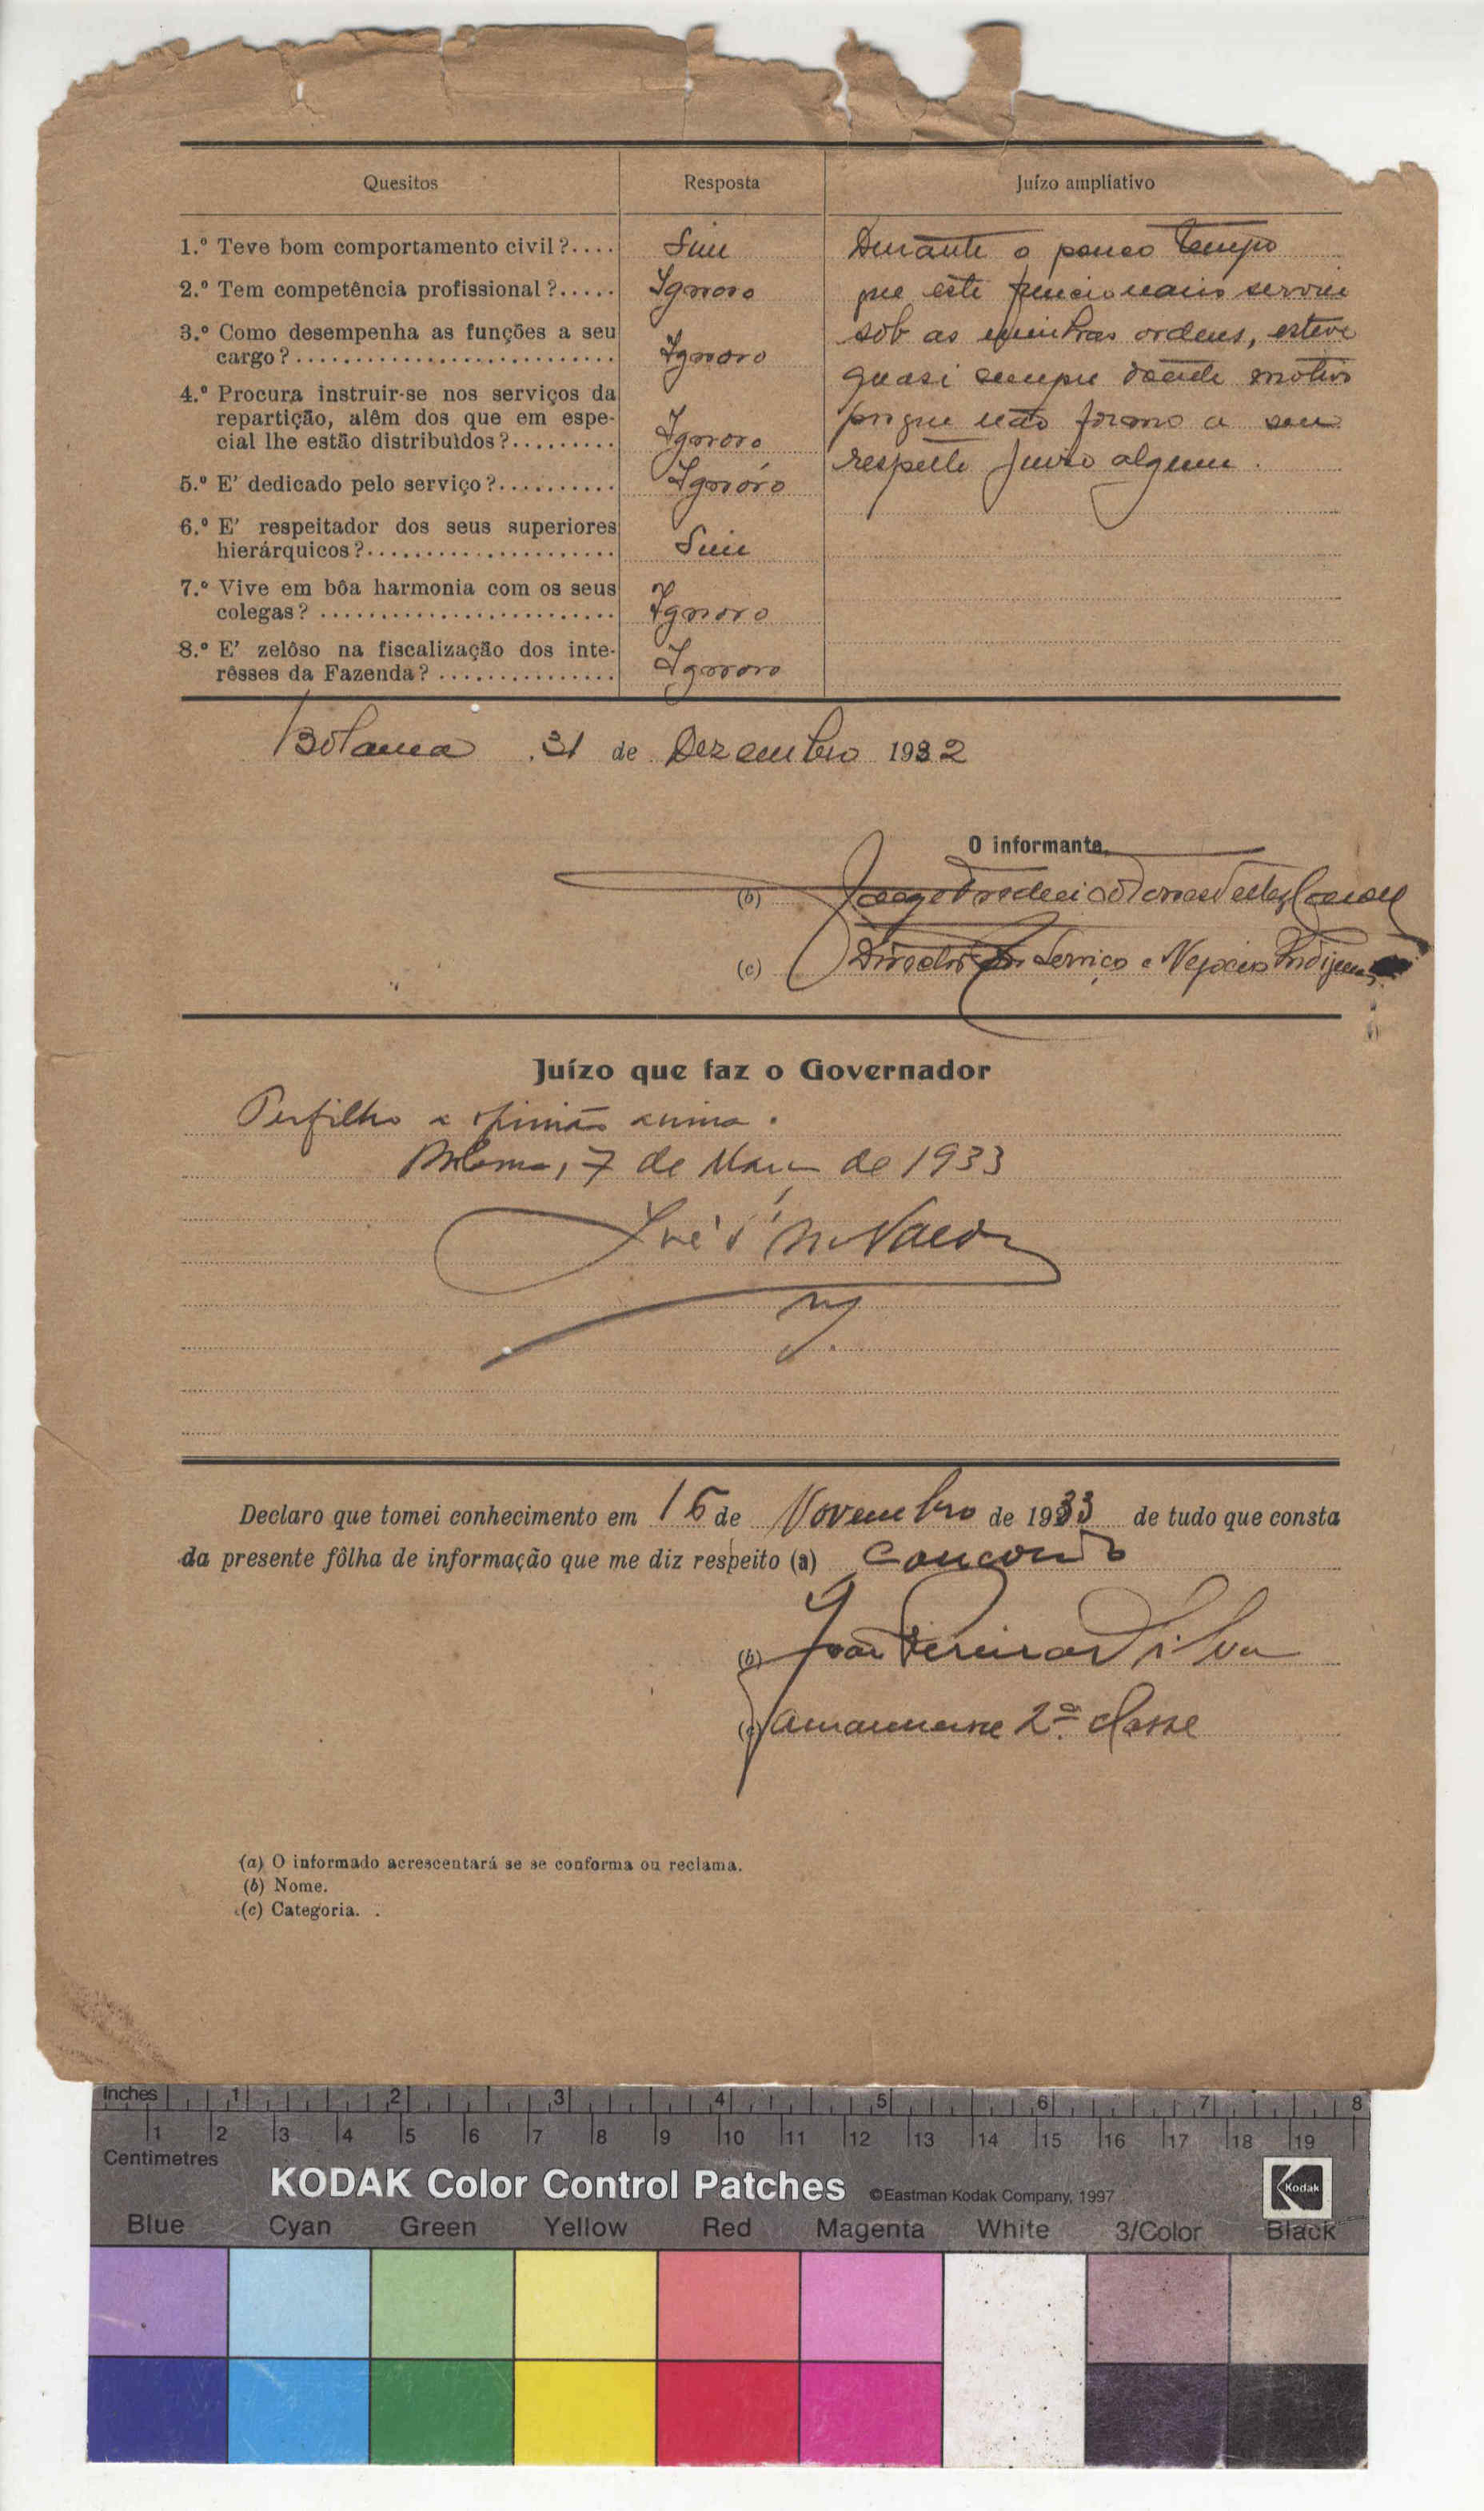 Quesitos Resposta Juízo ampliativo
1.º Teve bom comportamento civil?.... Sim
2.º Tem competência profissional?..... Ignoro
3.º Como desempenha as funções a seu
cargo?........................... Ignoro
4.º Procura instruir-se nos serviços da
repartição, alêm dos que em espe-
cial lhe estão distribuìdos?......... Ignoro
5.º E' dedicado pelo serviço?.......... Ignóro
6.º E' respeitador dos seus superiores
hierárquicos?..................... Sim
7.º Vive em bôa harmonia com os seus
colegas? ........................ Ignoro
8.º E' zelôso na fiscalização dos inte-
rêsses da Fazenda? ............... Ignoro
Durante o pouco tempo
que este funcionario serviu
sob as minhas ordens, esteve
quasi sempre doente motivo
porque não formo a seu
respeito juizo algum.
Bolama, 31 de Dezembro 1932
O informante,
(b)
(c) Director dos Serviços e Negocios Indigenas
Juízo que faz o Governador
Perfilho a opinião acima.
Bolama, 7 de de 1933
Declaro que tomei conhecimento em 16 de Novembro de 1933 de tudo que consta
da presente fôlha de informação que me diz respeito (a) Concordo
(b) João Pereira Silva
(c) amanuense 2.ª classe
(a) O informado acrescentará se se conforma ou reclama.
(b) Nome.
(c) Categoria.
Inches 1 2 3 4 5 6 7 8
1 2 3 4 5 6 7 8 9 10 11 12 13 14 15 16 17 18 19
Centimetres
KODAK Color Control Patches ©Eastman Kodak Company, 1997 Kodak
Blue Cyan Green Yellow Red Magenta White 3/Color Black